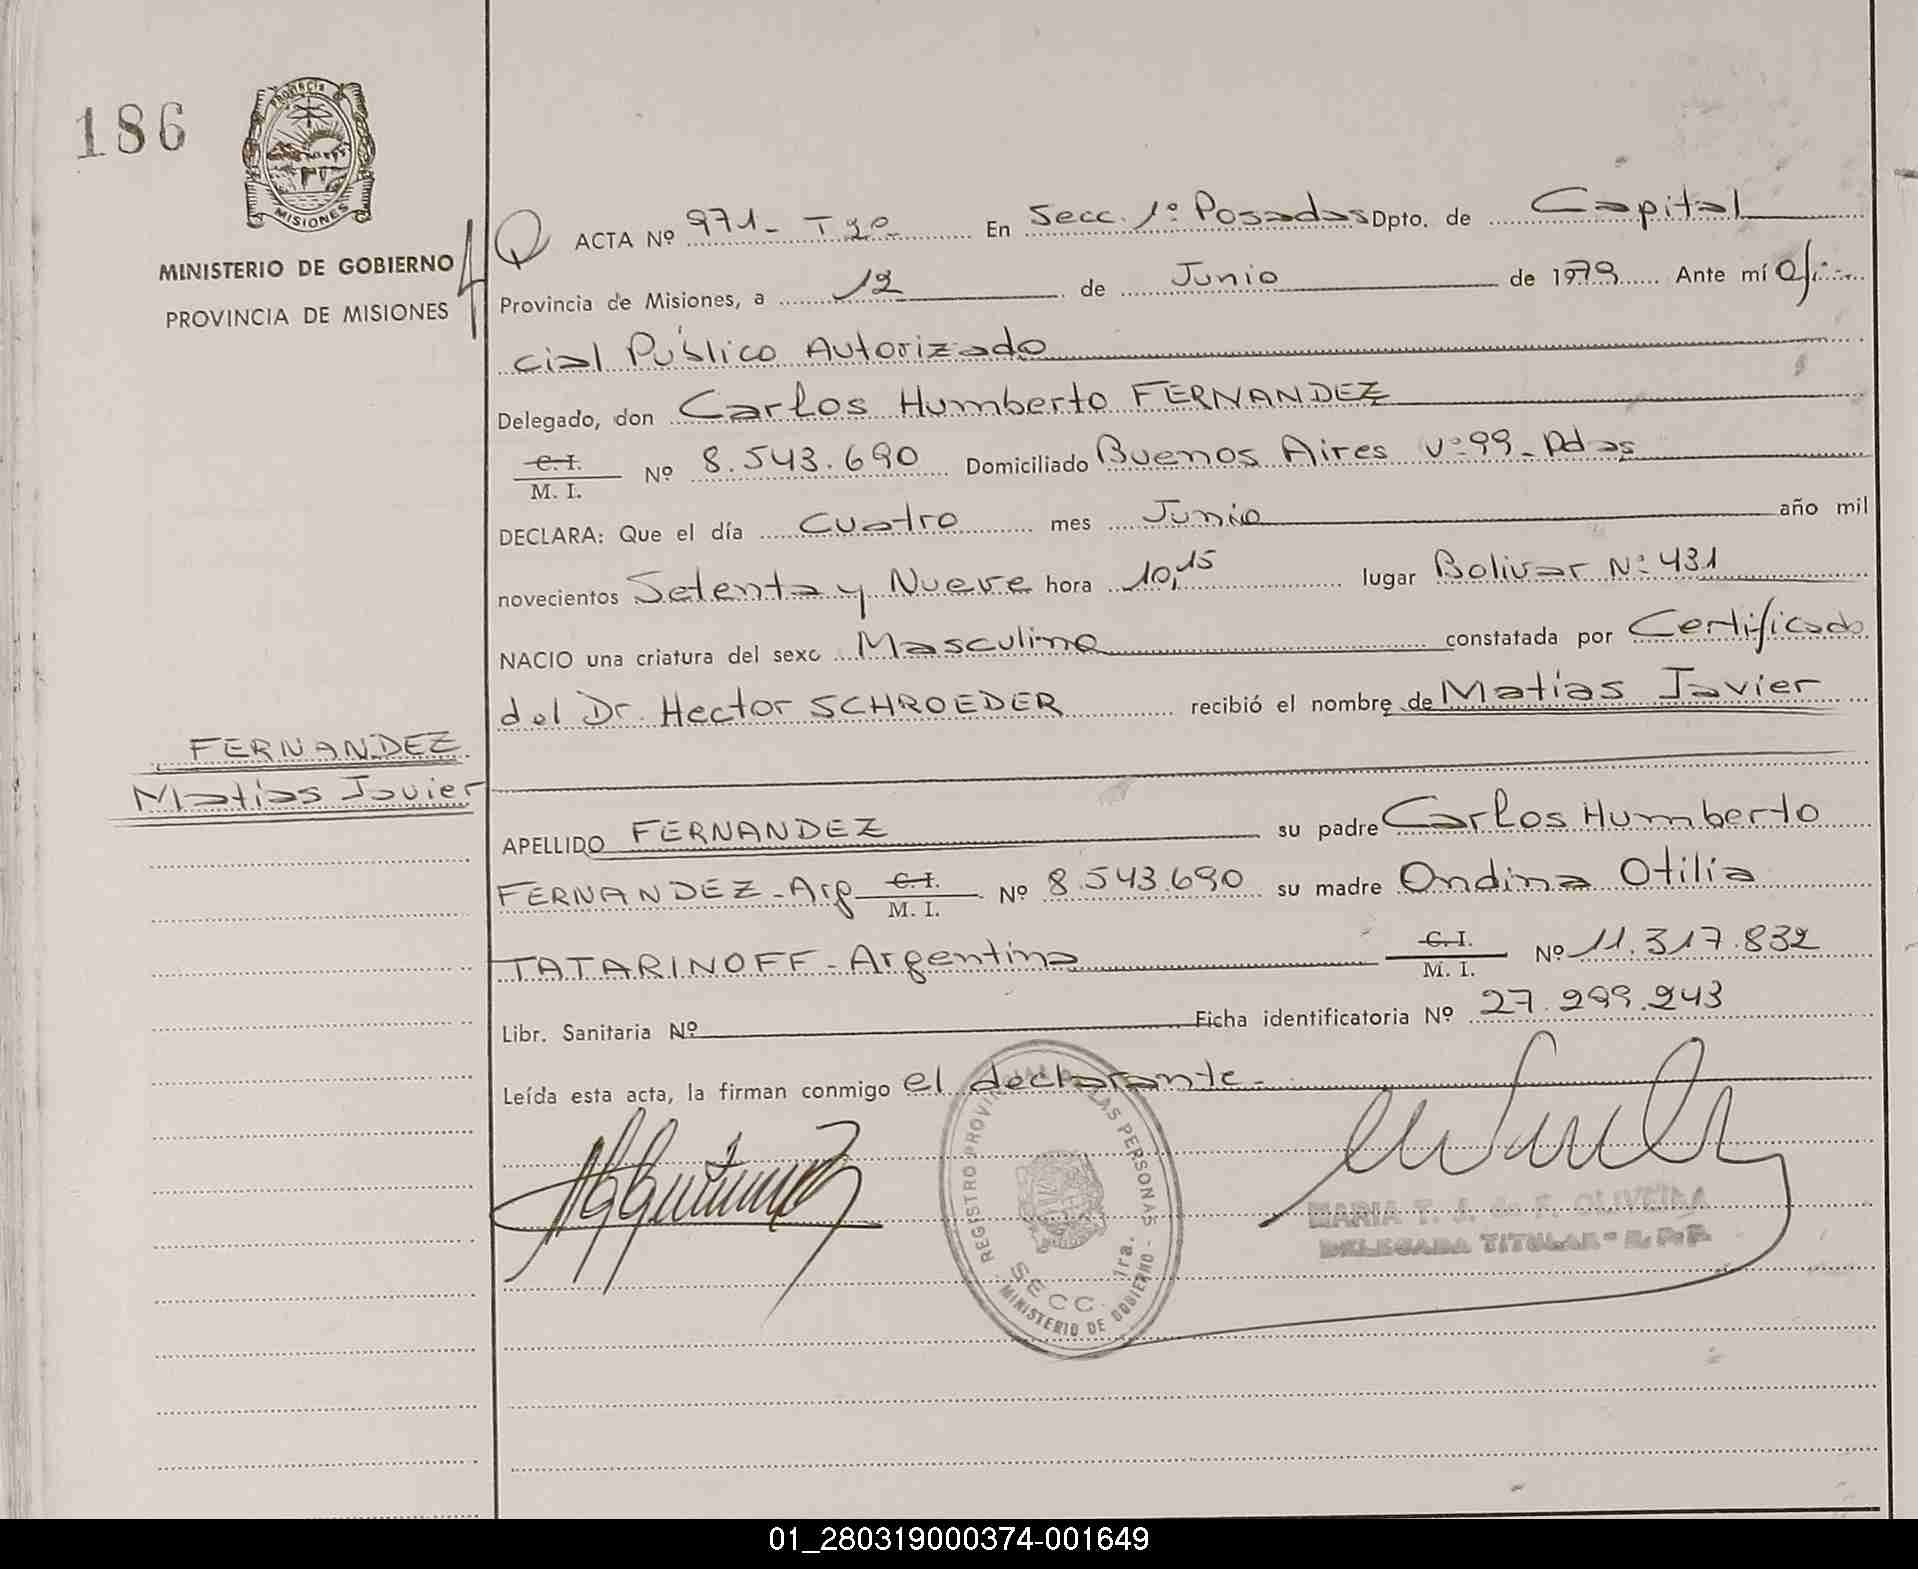 186
PROVINCIA
MISIONES
MINISTERIO DE GOBIERNO
PROVINCIA DE MISIONES
ACTA Nº 971- En Secc. 1º Posadas Dpto. de Capital
Provincia de Misiones, a 12 de Junio de 1979 Ante mí Ofi-
cial Público Autorizado
Delegado, don Carlos Humberto FERNANDEZ
C. I.
M. I. Nº 8.543.690 Domiciliado Buenos Aires Nº 99 - Pdas
DECLARA: Que el día Cuatro mes Junio año mil
novecientos Setenta y Nueve hora 10,15 lugar Bolivar Nº 431
NACIO una criatura del sexo Masculino constatada por Certificado
del Dr. Hector SCHROEDER recibió el nombre de Matias Javier
FERNANDEZ
Matias Javier
APELLIDO FERNANDEZ su padre Carlos Humberto
FERNANDEZ - Arg C. I. M. I. Nº 8.543.690 su madre Ondina Otilia
TATARINOFF - Argentina C. I. M. I. Nº 11.317.832
Libr. Sanitaria Nº Ficha identificatoria Nº 27.299.243
Leída esta acta, la firman conmigo el declarante -
REGISTRO PROVINCIAL DE LAS PERSONAS - MINISTERIO DE GOBIERNO -
SECC. 1ra.
MARIA T. J. de F. OLIVEIRA
DELEGADA TITULAR - R. P. P.
01_280319000374-001649